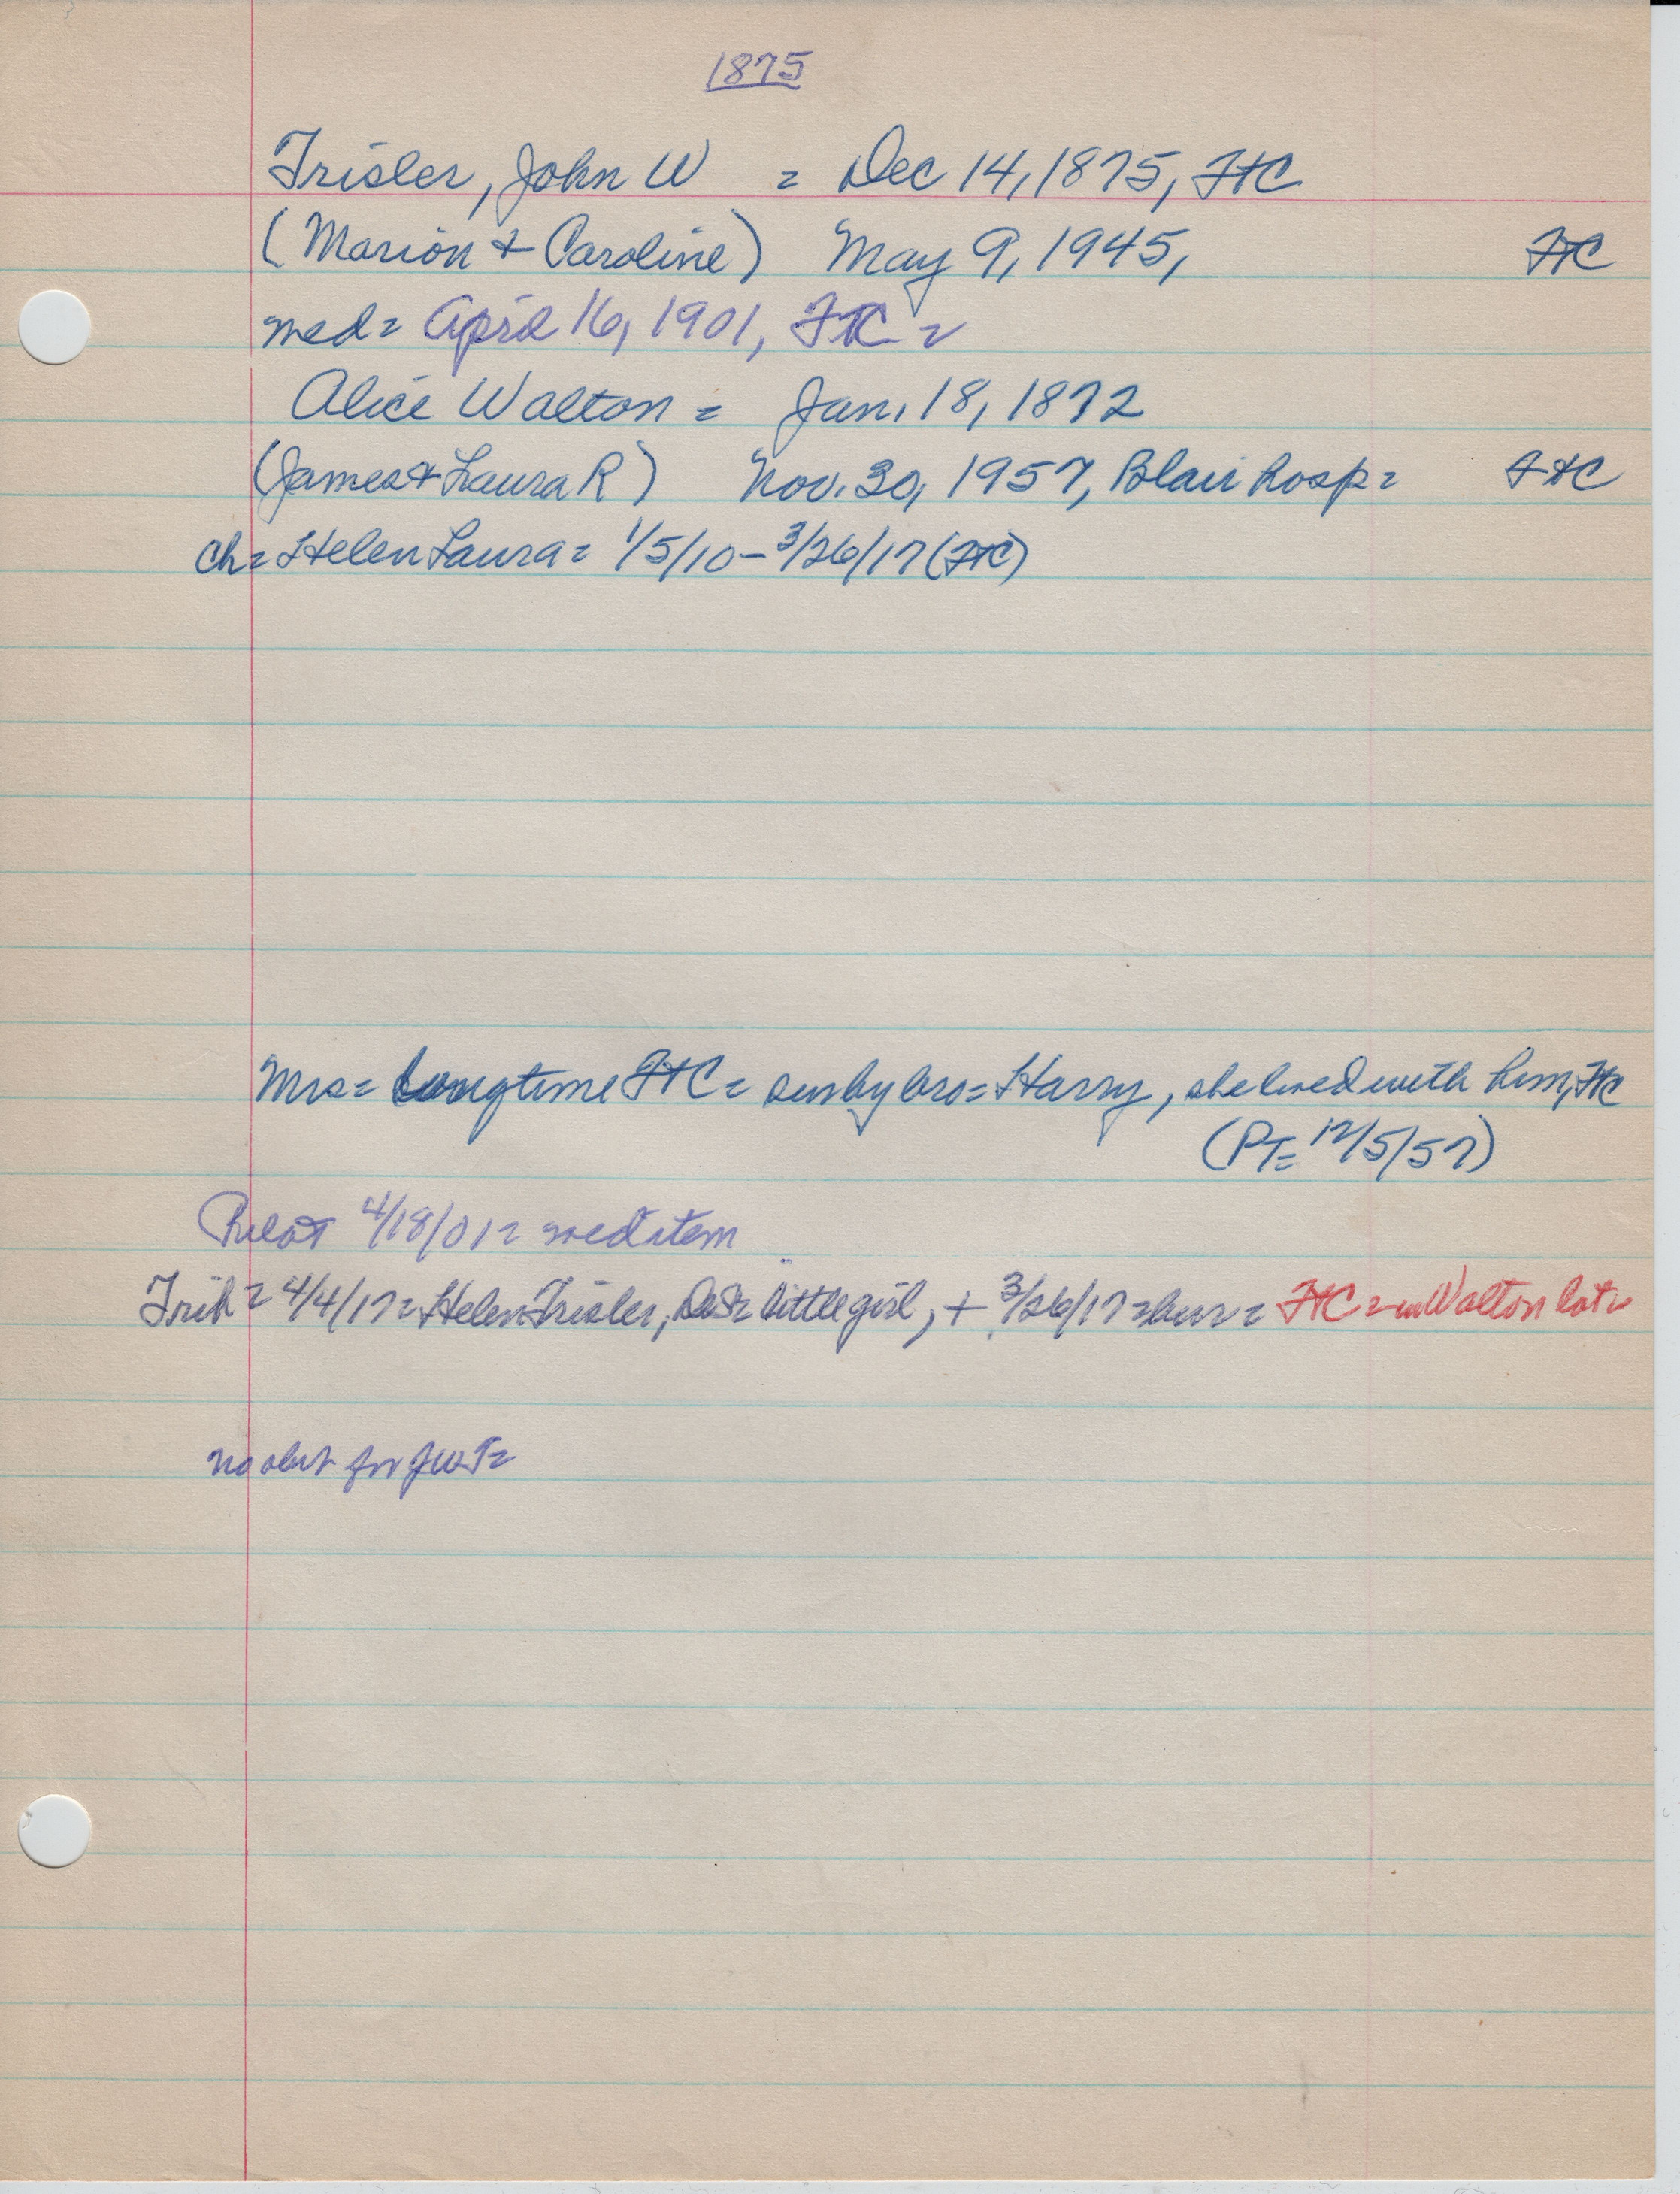 1875
Trisler, John W = Dec 14, 1875, FtC
(Marion + Caroline) May 9, 1945, FtC
med= April 16, 1901, FtC =
Alice Walton = Jan. 18, 1872
(James + Laura R) Nov. 30, 1957, Blair Hosp = FtC
Ch= Helen Laura = 1/5/10 - 3/26/17 (FtC)
Mrs = longtime FtC = surv by bro = Harry, she lived with him, FtC
(PT= 12/5/57)
Pilot 4/18/01 = med item
Trib = 4/4/17 = Helen Trisler, little girl, + 3/26/17 = bur = FtC = in Walton lot =
no obit for JWT =